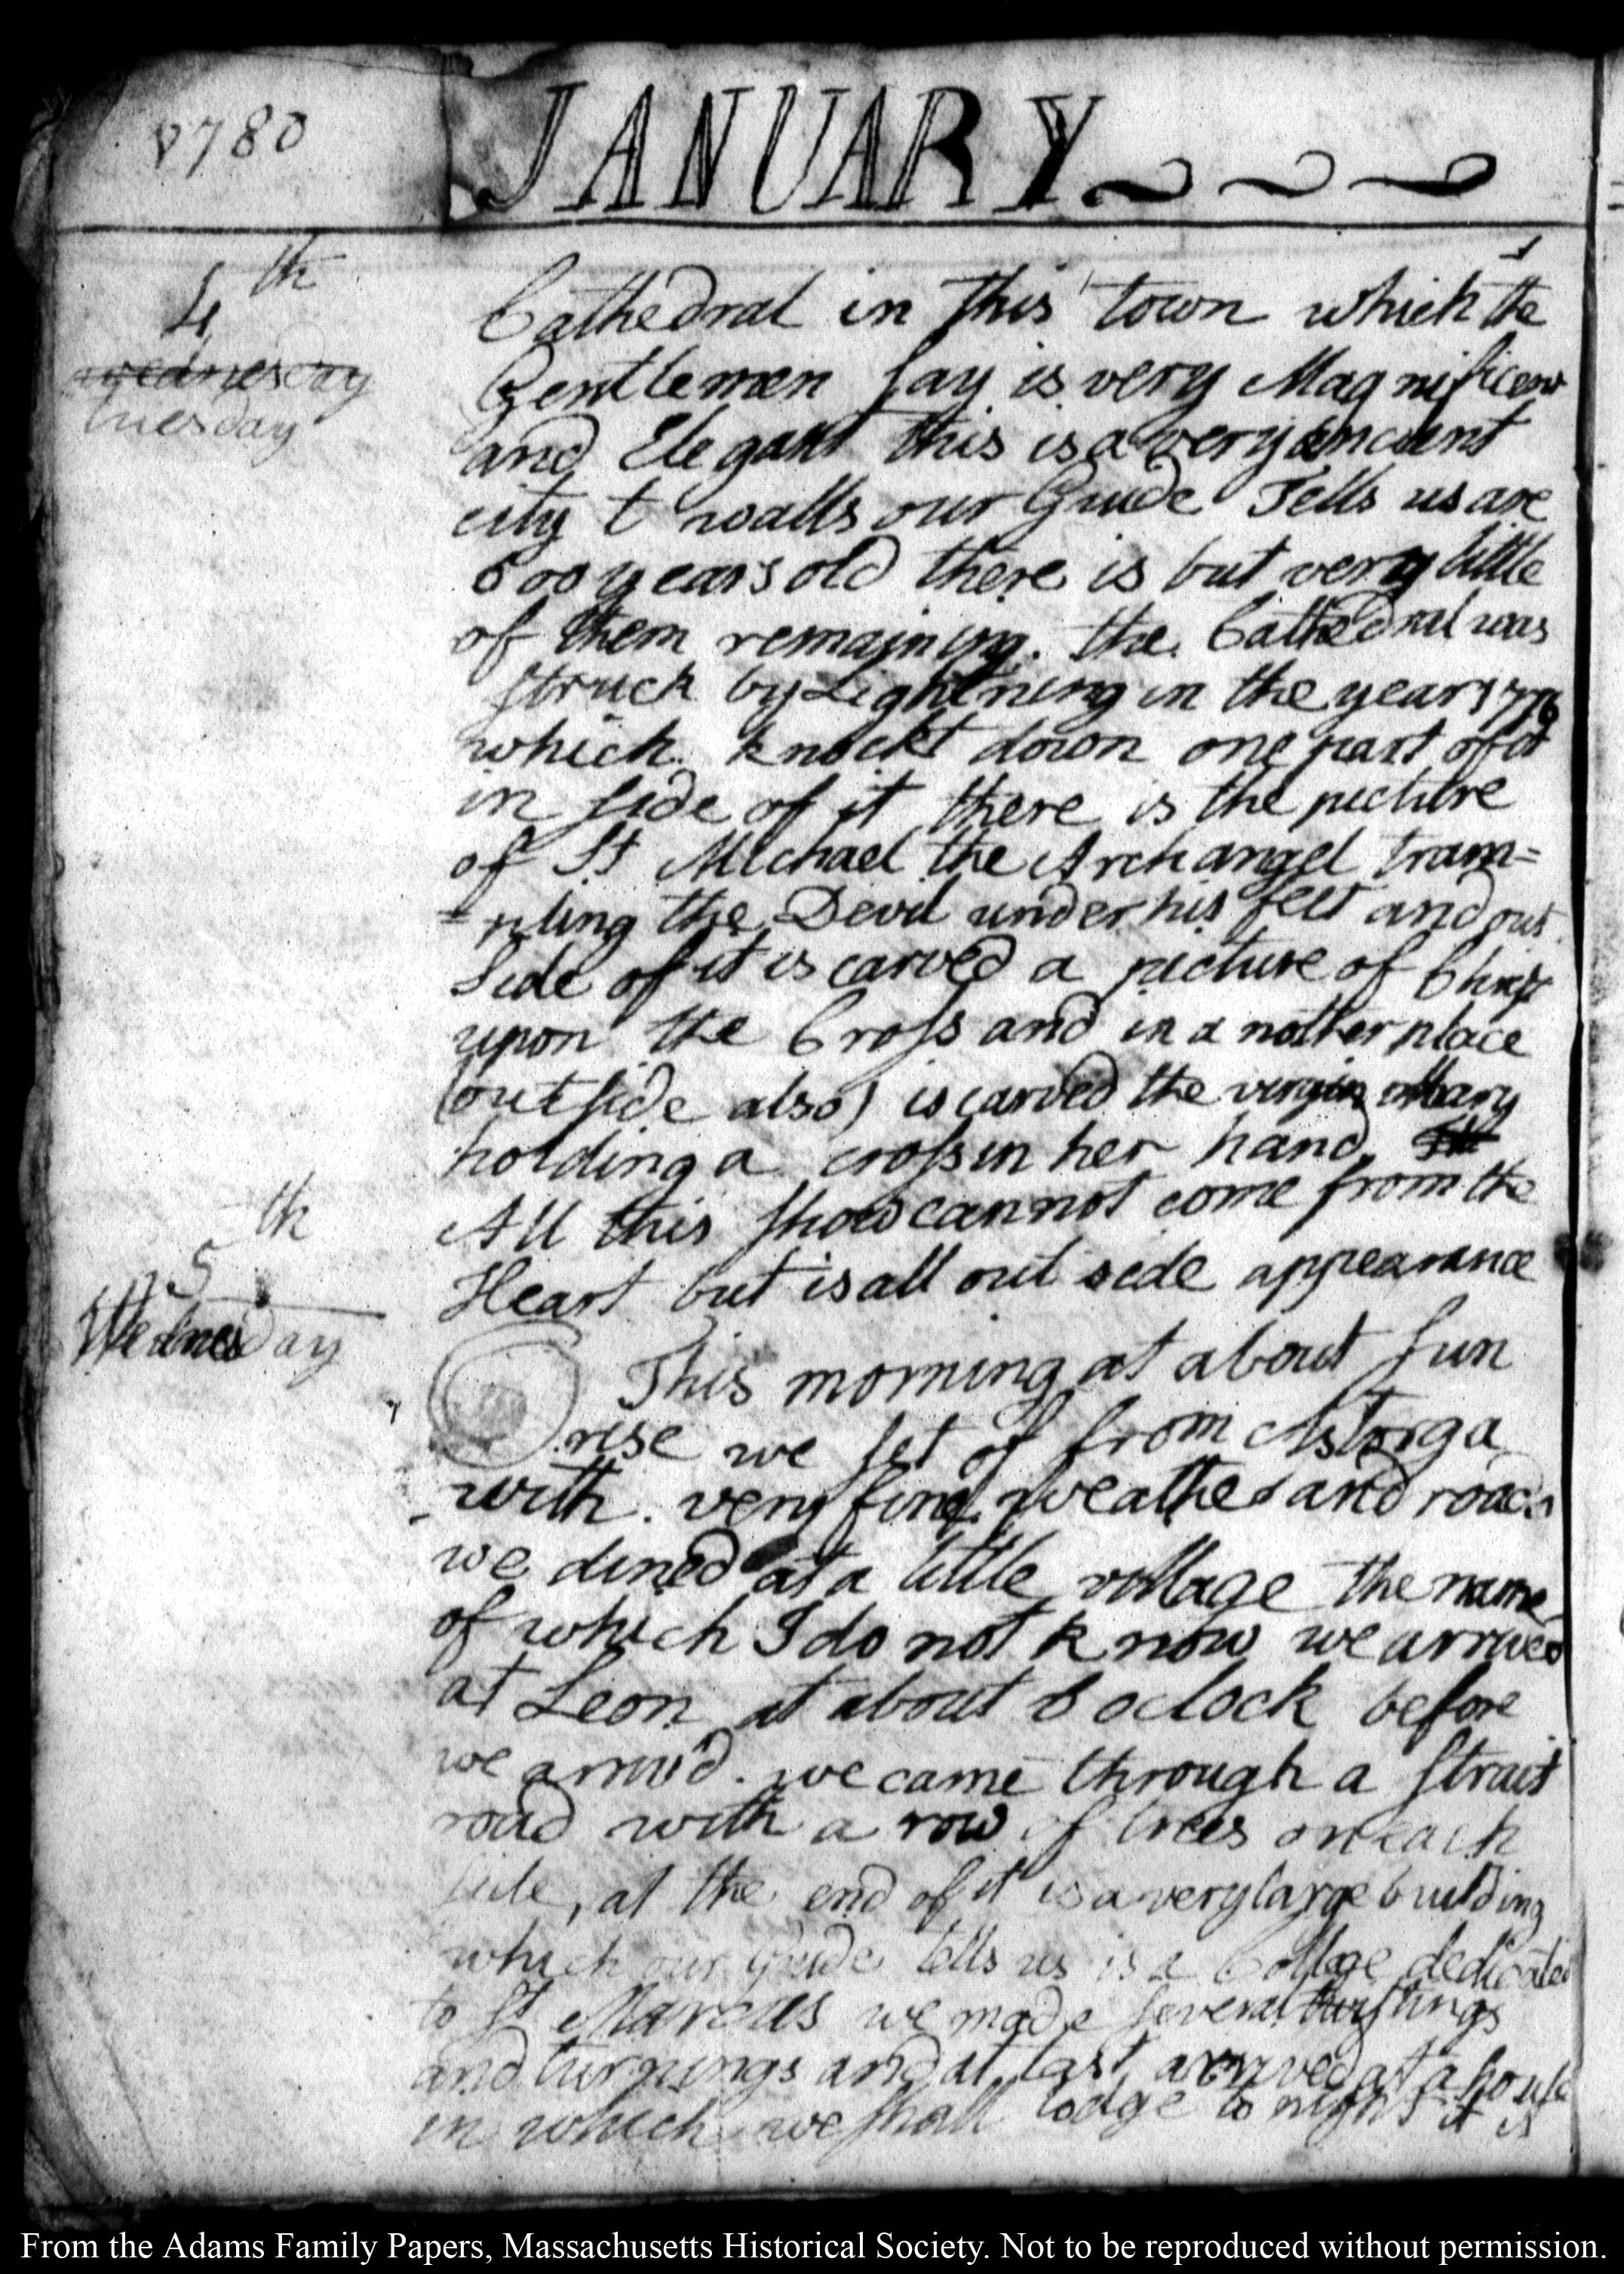 1780
JANUARY
4th
Wednesday
Tuesday
Cathedral in this town which the
Gentlemen say is very Magnificent
and Elegant this is a very ancient
city t walls our Guide Tells us are
600 years old there is but very little
of them remaining. the Cathedral was
struck by Lightning in the year 1776
which knockt down one part of it
in side of it there is the picture
of St Michael the Archangel tram=
=pling the Devil under his feet and out
side of it is carved a picture of Christ
upon the Cross and in a nother place
(outside also) is carved the virgin Mary
holding a cross in her hand
All this show cannot come from the
Heart but is all out side appearance
5th
Wednesday
This morning at about sun
rise we set of from Astorga
with very fine weather and roads
we dined at a little village the name
of which I do not know we arrived
at Leon at about 8 oclock before
we arrivd. we came through a strait
road with a row of trees on each
side, at the end of it is a very large building
which our Guide tells us is a Collage dedicated
to St Marcus we made several twistings
and turnings and at last arrived at a house
in which we shall lodge to night it is
From the Adams Family Papers, Massachusetts Historical Society. Not to be reproduced without permission.